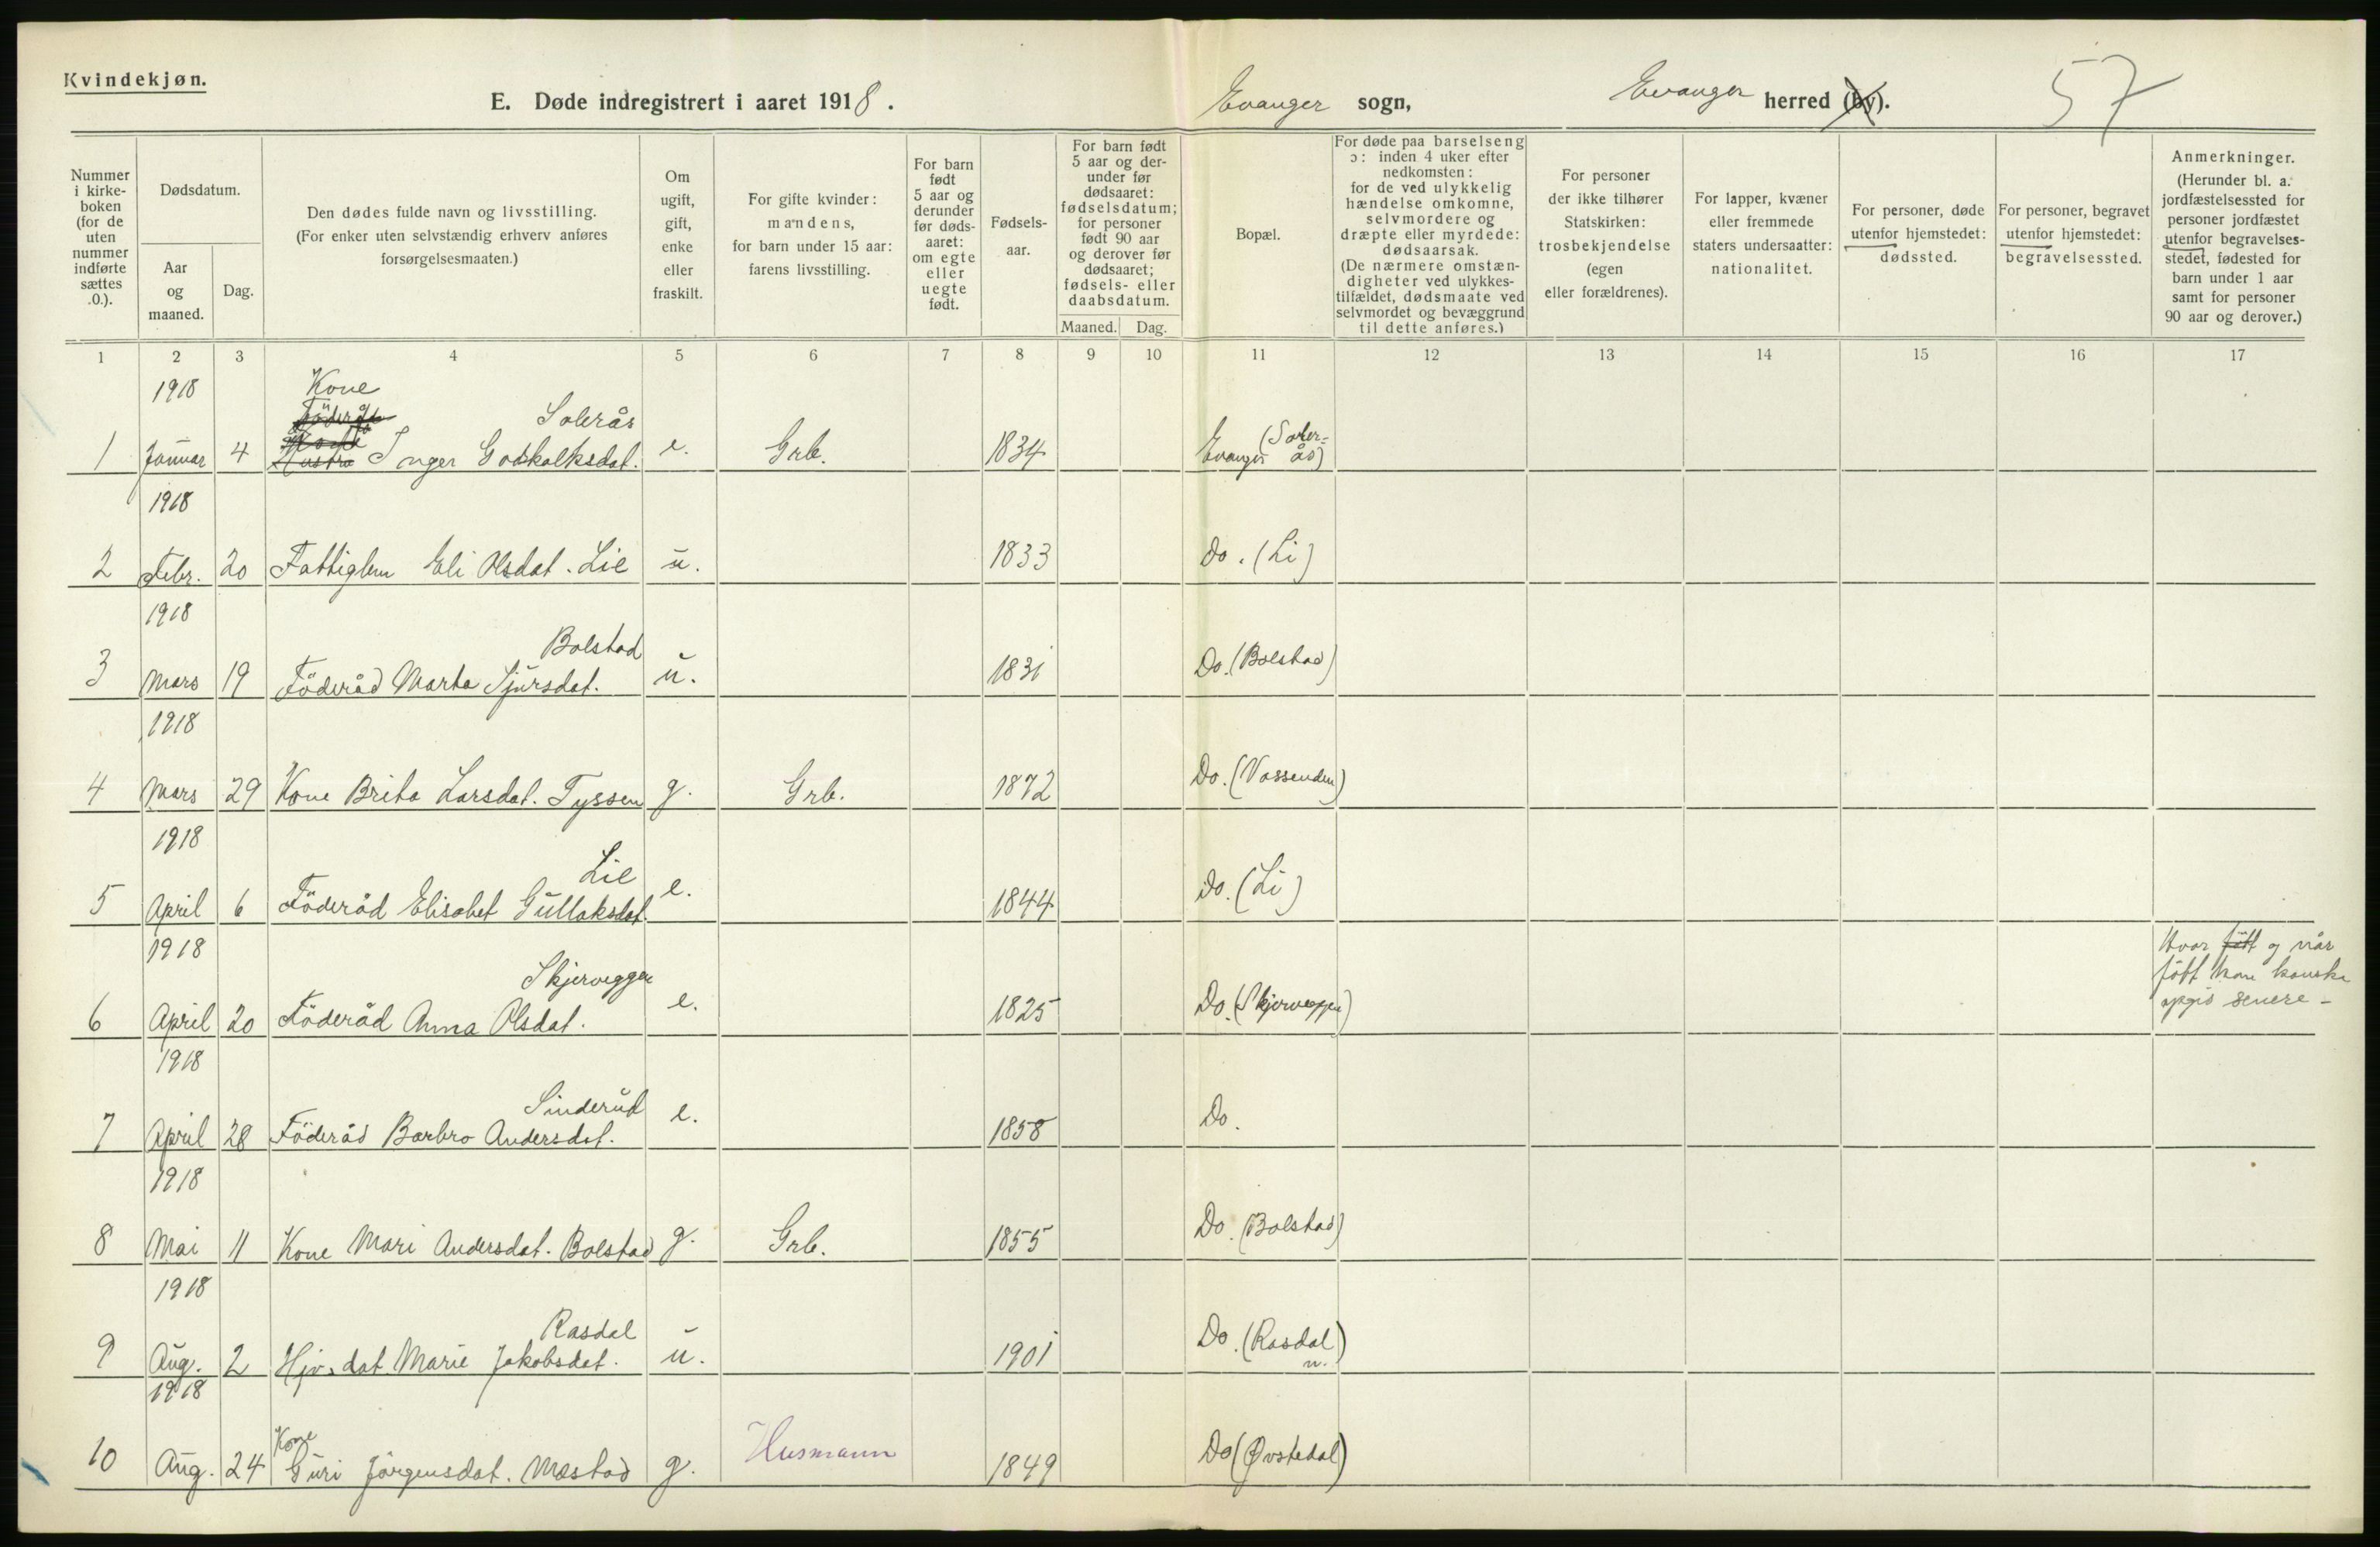 Kvindekjøn.
E. Døde indregistrert i aaret 1918.
Evanger sogn,
Evanger herred (by).
57
Nummer
i kirke-
boken
(for de
uten
nummer
indførte
sættes
.0.).
Dødsdatum.
Aar
og
maaned.
Dag.
Den dødes fulde navn og livsstilling.
(For enker uten selvstændig erhverv anføres
forsørgelsesmaaten.)
Om
ugift,
gift,
enke
eller
fraskilt.
For gifte kvinder:
mandens,
for barn under 15 aar:
farens livsstilling.
For barn
født
5 aar og
derunder
før døds-
aaret:
om egte
eller
uegte
født.
Fødsels-
aar.
For barn født
5 aar og der-
under før
dødsaaret:
fødselsdatum;
for personer
født 90 aar
og derover før
dødsaaret;
fødsels- eller
daabsdatum.
Maaned. Dag.
Bopæl.
For døde paa barselseng
ɔ: inden 4 uker efter
nedkomsten:
for de ved ulykkelig
hændelse omkomne,
selvmordere og
dræpte eller myrdede:
dødsaarsak.
(De nærmere omstæn-
digheter ved ulykkes-
tilfældet, dødsmaate ved
selvmordet og bevæggrund
til dette anføres.)
For personer
der ikke tilhører
Statskirken:
trosbekjendelse
(egen
eller forældrenes).
For lapper, kvæner
eller fremmede
staters undersaatter:
nationalitet.
For personer, døde
utenfor hjemstedet:
dødssted.
For personer, begravet
utenfor hjemstedet:
begravelsessted.
Anmerkninger.
(Herunder bl. a.
jordfæstelsessted for
personer jordfæstet
utenfor begravelses-
stedet, fødested for
barn under 1 aar
samt for personer
90 aar og derover.)
1 2 3 4 5 6 7 8 9 10 11 12 13 14 15 16 17
1918 Kone
Föderåd Solerås
1 Januar 4 Hustru Inger Godskalksdat. e. Grb. 1834 Evanger (Soler=
ås)
1918
2 Febr. 20 Fattiglem Eli Olsdat. Lie u. 1833 Do. (Li)
1918
Bolstad
3 Mars 19 Föderåd Marta Sjursdat. u. 1831 Do. (Bolstad)
1918
4 Mars 29 Kone Brita Larsdat. Tyssen g. Grb. 1872 Do. (Vassenden)
1918
Lie
5 April 6 Föderåd Elisabet Gullaksdat. e. 1844 Do. (Li)
1918
Skjerveggen
6 April 20 Föderåd Anna Olsdat. e. 1825 Do. (Skjerveggen)
Hvor födt og når
födt kan kanske
opgis senere –
1918
Sinderud
7 April 28 Föderåd Barbro Andersdat. e. 1858 Do.
1918
8 Mai 11 Kone Mari Andersdat. Bolstad g. Grb. 1855 Do. (Bolstad)
1918
Rasdal
9 Aug. 2 Hjv. dat. Marie Jakobsdat. u. 1901 Do. (Rasdal
n.)
1918
Kone
10 Aug. 24 Guri Jörgensdat. Mæstad g. Husmann 1849 Do (Øvstedal)